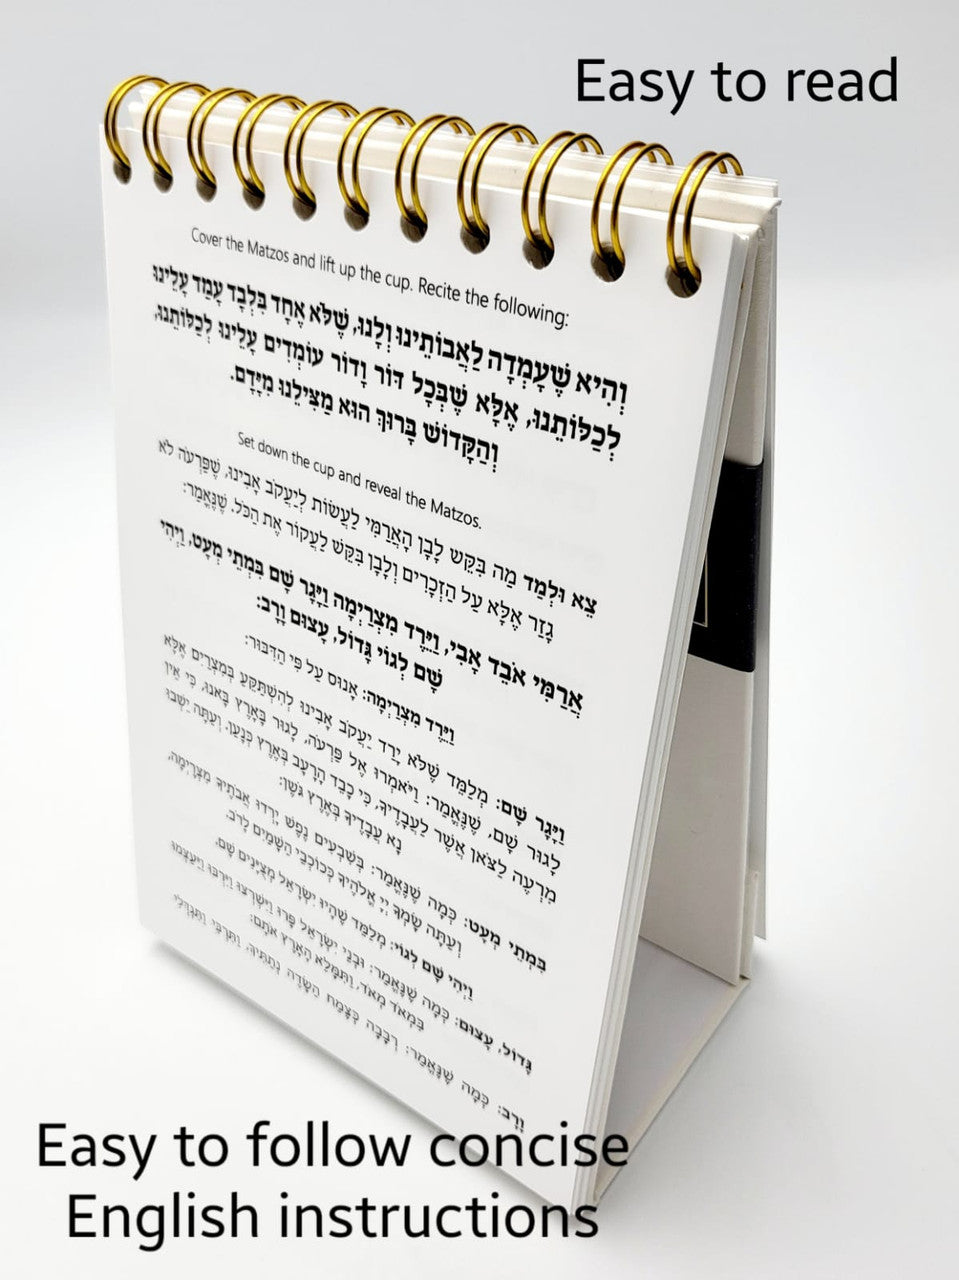 Easy to read
Cover the Matzos and lift up the cup. Recite the following:
וְהִיא שֶׁעָמְדָה לַאֲבוֹתֵינוּ וְלָנוּ, שֶׁלֹּא אֶחָד בִּלְבָד עָמַד עָלֵינוּ
לְכַלּוֹתֵנוּ, אֶלָּא שֶׁבְּכָל דּוֹר וָדוֹר עוֹמְדִים עָלֵינוּ לְכַלּוֹתֵנוּ,
וְהַקָּדוֹשׁ בָּרוּךְ הוּא מַצִּילֵנוּ מִיָּדָם.
Set down the cup and reveal the Matzos.
צֵא וּלְמַד מַה בִּקֵּשׁ לָבָן הָאֲרַמִּי לַעֲשׂוֹת לְיַעֲקֹב אָבִינוּ, שֶׁפַּרְעֹה לֹא
גָזַר אֶלָּא עַל הַזְּכָרִים וְלָבָן בִּקֵּשׁ לַעֲקוֹר אֶת הַכֹּל. שֶׁנֶּאֱמַר:
אֲרַמִּי אֹבֵד אָבִי, וַיֵּרֶד מִצְרַיְמָה וַיָּגָר שָׁם בִּמְתֵי מְעָט, וַיְהִי
שָׁם לְגוֹי גָּדוֹל, עָצוּם וָרָב:
וַיֵּרֶד מִצְרַיְמָה: אָנוּס עַל פִּי הַדִּבּוּר:
וַיָּגָר שָׁם: מְלַמֵּד שֶׁלֹּא יָרַד יַעֲקֹב אָבִינוּ לְהִשְׁתַּקֵּעַ בְּמִצְרַיִם אֶלָּא
לָגוּר שָׁם, שֶׁנֶּאֱמַר: וַיֹּאמְרוּ אֶל פַּרְעֹה, לָגוּר בָּאָרֶץ בָּאנוּ, כִּי אֵין
מִרְעֶה לַצֹּאן אֲשֶׁר לַעֲבָדֶיךָ, כִּי כָבֵד הָרָעָב בְּאֶרֶץ כְּנָעַן. וְעַתָּה יֵשְׁבוּ
נָא עֲבָדֶיךָ בְּאֶרֶץ גֹּשֶׁן:
בִּמְתֵי מְעָט: כְּמָה שֶׁנֶּאֱמַר: בְּשִׁבְעִים נֶפֶשׁ יָרְדוּ אֲבֹתֶיךָ מִצְרָיְמָה,
וְעַתָּה שָׂמְךָ יְיָ אֱלֹהֶיךָ כְּכוֹכְבֵי הַשָּׁמַיִם לָרֹב.
וַיְהִי שָׁם לְגוֹי: מְלַמֵּד שֶׁהָיוּ יִשְׂרָאֵל מְצֻיָּנִים שָׁם.
גָּדוֹל, עָצוּם: כְּמָה שֶׁנֶּאֱמַר: וּבְנֵי יִשְׂרָאֵל פָּרוּ וַיִּשְׁרְצוּ וַיִּרְבּוּ וַיַּעַצְמוּ
בִּמְאֹד מְאֹד, וַתִּמָּלֵא הָאָרֶץ אֹתָם:
וָרָב: כְּמָה שֶׁנֶּאֱמַר: רְבָבָה כְּצֶמַח הַשָּׂדֶה נְתַתִּיךְ, וַתִּרְבִּי וַתִּגְדְּלִי
Easy to follow concise
English instructions